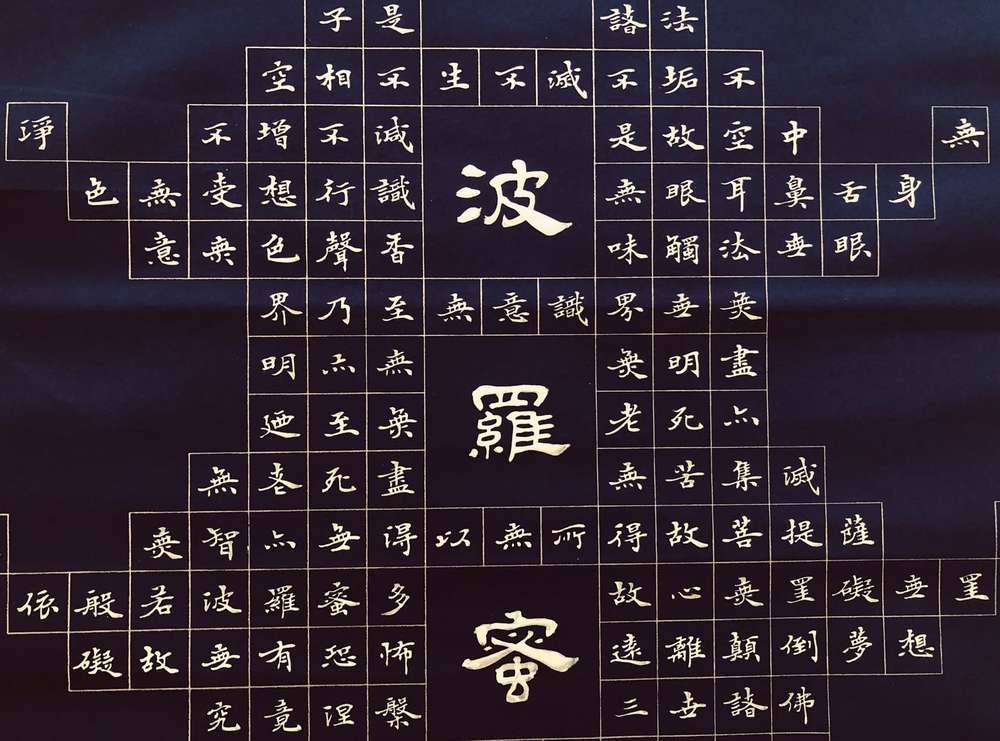 子是 諸法
空相不生不滅不垢不
淨 不增不減 是故空中 無
色無受想行識 波 無眼耳鼻舌身
意無色聲香 味觸法無眼
界乃至無意識界無無
明亦無 無明盡
廼至無 羅 老死亦
無老死盡 無苦集滅
無智亦無得以無所得故菩提薩
依般若波羅蜜多 故心無罣礙無罣
礙故無有恐怖 蜜 遠離顛倒夢想
究竟涅槃 三世諸佛